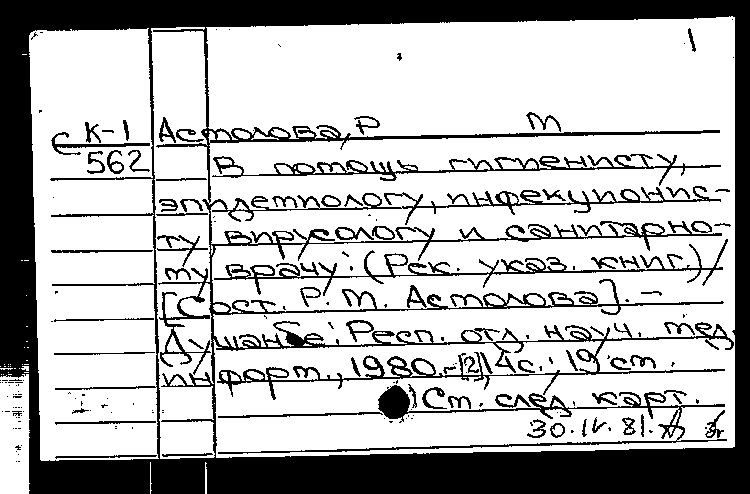 1
С К-1 Асмолова, Р М
562 В помощь гигиенисту,
эпидемиологу, инфекционис-
ту, вирусологу и санитарно-
му врачу: (Рек. указ. книг.) /
[Сост. Р. М. Асмолова]. –
Душанбе: Респ. отд. науч. мед.
информ., 1980. – [2], 14 с.; 19 см.
См. след. карт.
30.IV.81.